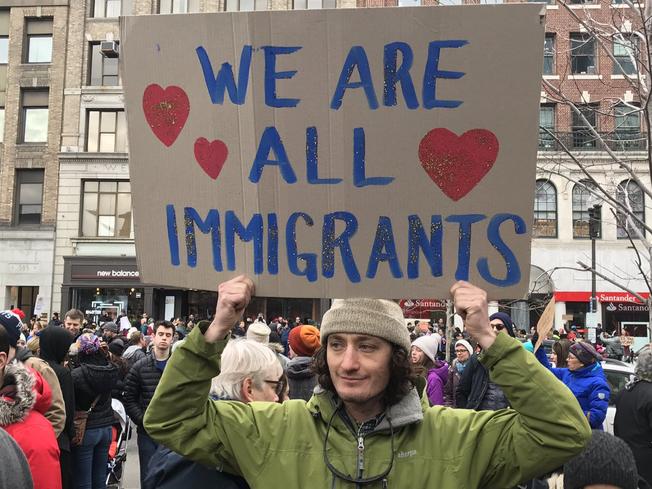 WE ARE
ALL
IMMIGRANTS
new balance
Santander
Santander
sherpa